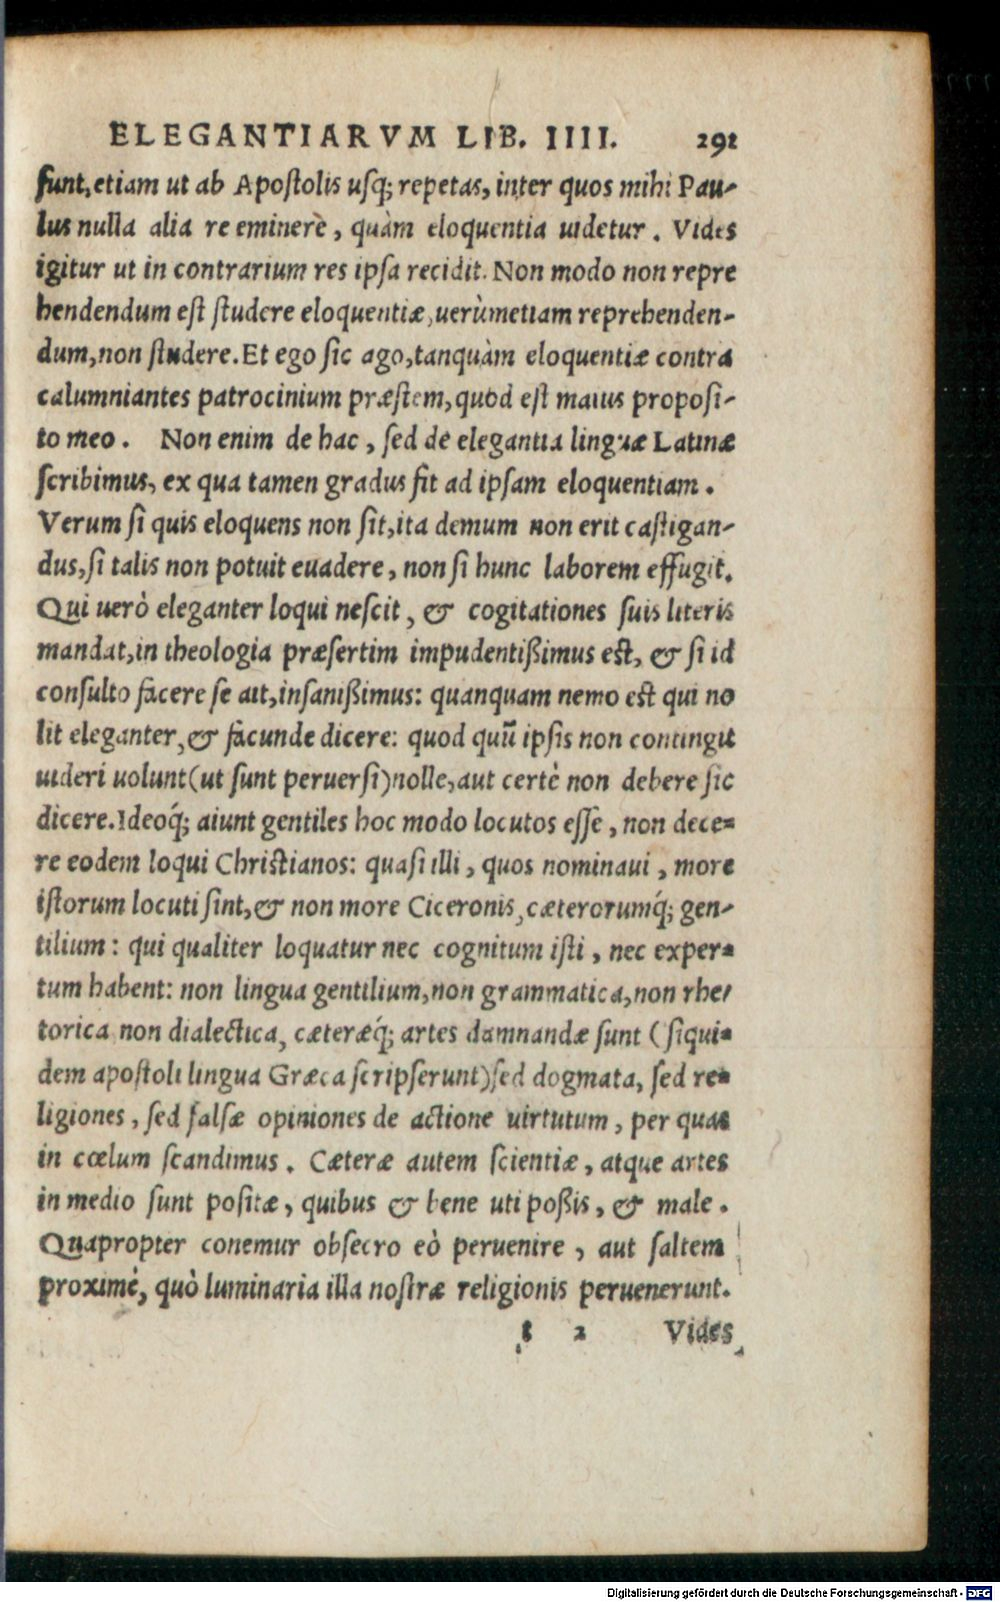 ELEGANTIARVM LIB. IIII. 291
sunt, etiam ut ab Apostolis usq; repetas, inter quos mihi Pau-
lus nulla alia re eminere, quàm eloquentia uidetur. Vides
igitur ut in contrarium res ipsa recidit. Non modo non repre
hendendum est studere eloquentiæ, uerùmetiam reprehenden-
dum, non studere. Et ego sic ago, tanquàm eloquentiæ contra
calumniantes patrocinium præstem, quod est maius proposi-
to meo. Non enim de hac, sed de elegantia linguæ Latinæ
scribimus, ex qua tamen gradus fit ad ipsam eloquentiam.
Verum si quis eloquens non sit, ita demum non erit castigan-
dus, si talis non potuit euadere, non si hunc laborem effugit.
Qui uerò eleganter loqui nescit, & cogitationes suis literis
mandat, in theologia præsertim impudentißimus est, & si id
consulto facere se ait, insanißimus: quanquam nemo est qui no
lit eleganter, & facunde dicere: quod quū ipsis non contingit
uideri uolunt (ut sunt peruersi) nolle, aut certè non debere sic
dicere. Ideoq́; aiunt gentiles hoc modo locutos esse, non dece-
re eodem loqui Christianos: quasi illi, quos nominaui, more
istorum locuti sint, & non more Ciceronis, cæterorumq́; gen-
tilium: qui qualiter loquatur nec cognitum isti, nec exper-
tum habent: non lingua gentilium, non grammatica, non rhe-
torica non dialectica, cæteræq́; artes damnandæ sunt (siqui-
dem apostoli lingua Græca scripserunt) sed dogmata, sed re-
ligiones, sed falsæ opiniones de actione uirtutum, per quas
in cœlum scandimus. Cæteræ autem scientiæ, atque artes
in medio sunt positæ, quibus & bene uti poßis, & male.
Quapropter conemur obsecro eò peruenire, aut saltem
proximè, quò luminaria illa nostræ religionis peruenerunt.
2 Vides
Digitalisierung gefördert durch die Deutsche Forschungsgemeinschaft - DFG